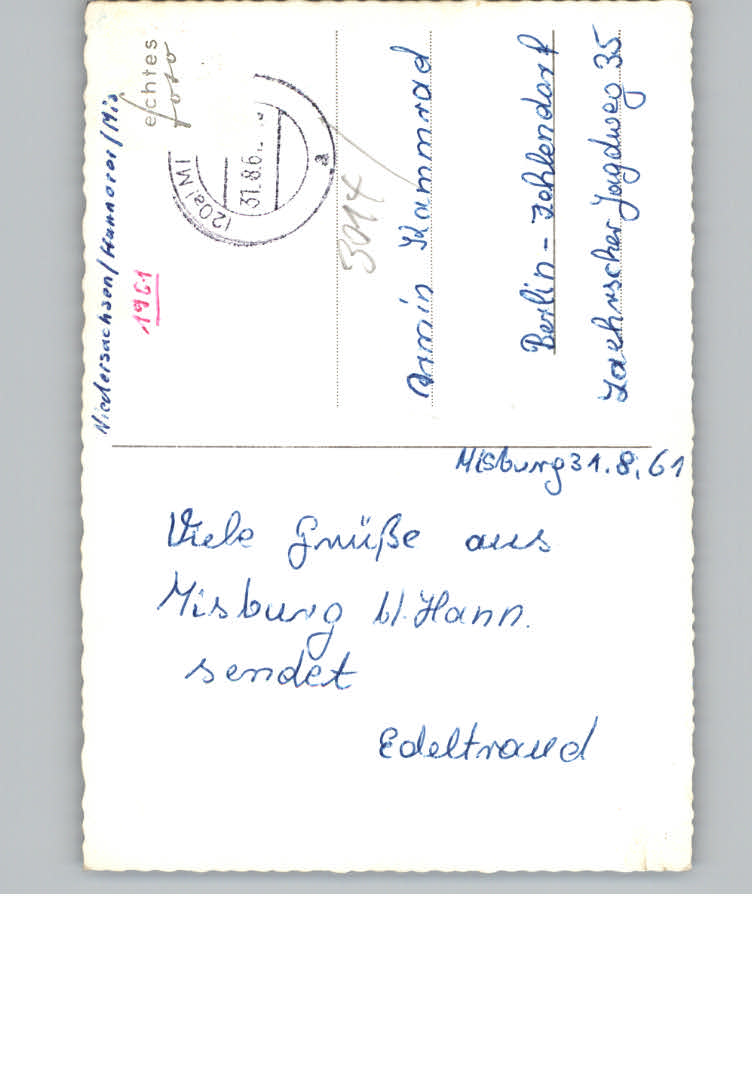 Misburg 31.8.61
Viele Grüße aus
Misburg b/. Hann.
sendet
Edeltraud
Armin Kammrad
Berlin-Zehlendorf
Jagdweg 35
Niedersachsen/Hannover/Mis
1961
echtes
foto
(20a) MI
31.8.6
a